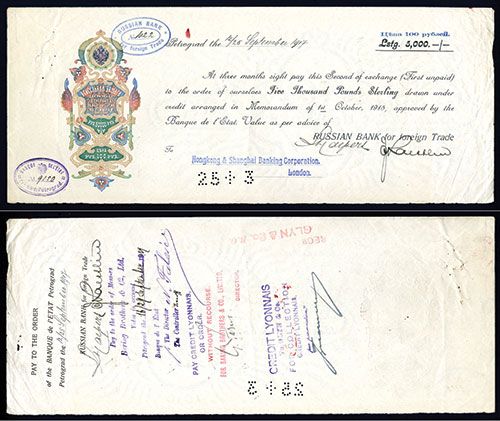 RUSSIAN BANK
for Foreign Trade
Цѣна 100 рублей.
Petrograd the September 1917
Lstg. 5,000.—/—
At three months sight pay this Second of exchange (First unpaid)
to the order of ourselves Five Thousand Pounds Sterling drawn under
credit arranged in Memorandum of 1st October, 1915, approved by the
Banque de l'Etat. Value as per advice of
RUSSIAN BANK for Foreign Trade
To
Hongkong & Shanghai Banking Corporation.
London.
25+3
PAY TO THE ORDER
of the BANQUE de l'ETAT Petrograd
Petrograd the September 1917
RUSSIAN BANK for Foreign Trade
Pay to the order of Messrs
Baring Brothers & Co, Ltd.
Petrograd the
Banque de l'Etat
The Director
The Controller
PAY CREDIT LYONNAIS,
OR ORDER
WITHOUT RECOURSE.
FOR BARING BROTHERS & CO. LIMITED.
DIRECTOR.
GLYN & Co.
CREDIT LYONNAIS
FOR COLLECTION
CREDIT LYONNAIS.
25+3